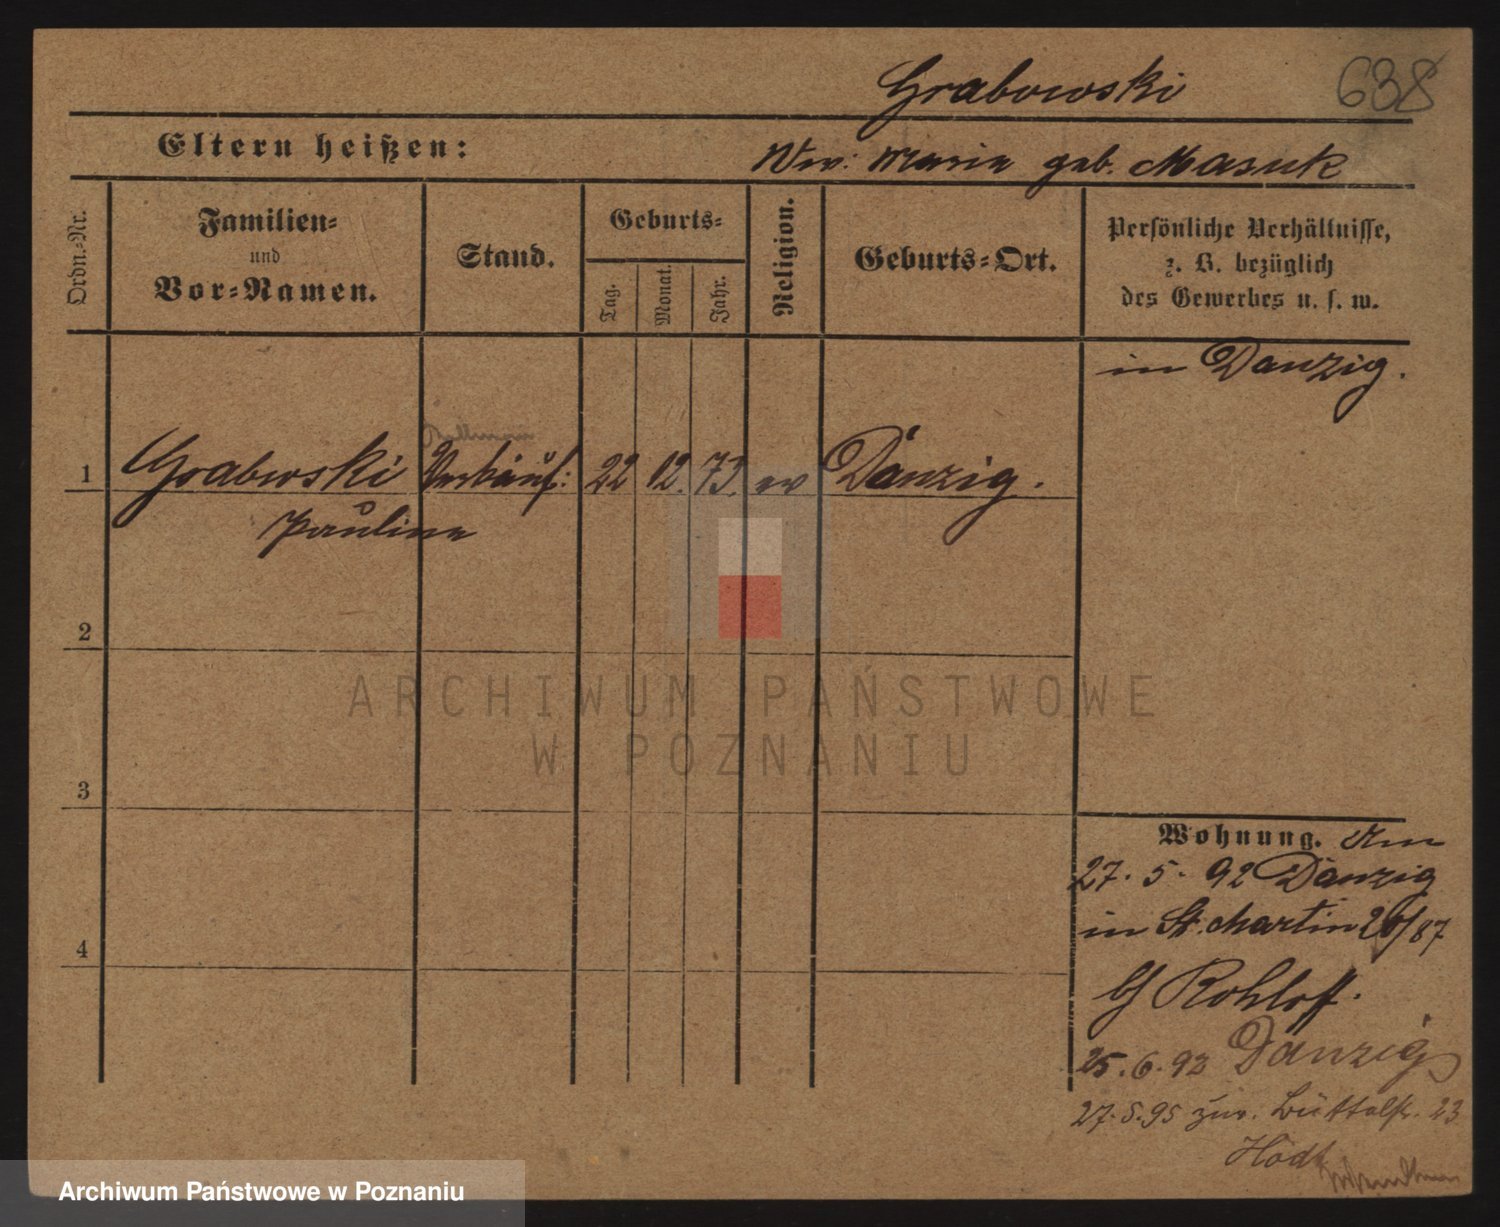 Grabowski
638
Eltern heißen:
Ww: Marie geb. Masuk
Ordn.-Nr.
Familien-
und
Vor-Namen.
Stand.
Geburts-
Tag.
Monat.
Jahr.
Religion.
Geburts-Ort.
Persönliche Verhältnisse,
z. B. bezüglich
des Gewerbes u. s. w.
in Danzig.
1 Grabowski Verkäuf: 22 12. 73. ev Danzig.
Pauline
2
ARCHIWUM PAŃSTWOWE
W POZNANIU
3
Wohnung. Am
27. 5. 92 Danzig
in St. Martin 20/87
b/ Rohloff.
4
25. 6. 92 Danzig
27.5.95 zur. 23
Hödt
Archiwum Państwowe w Poznaniu